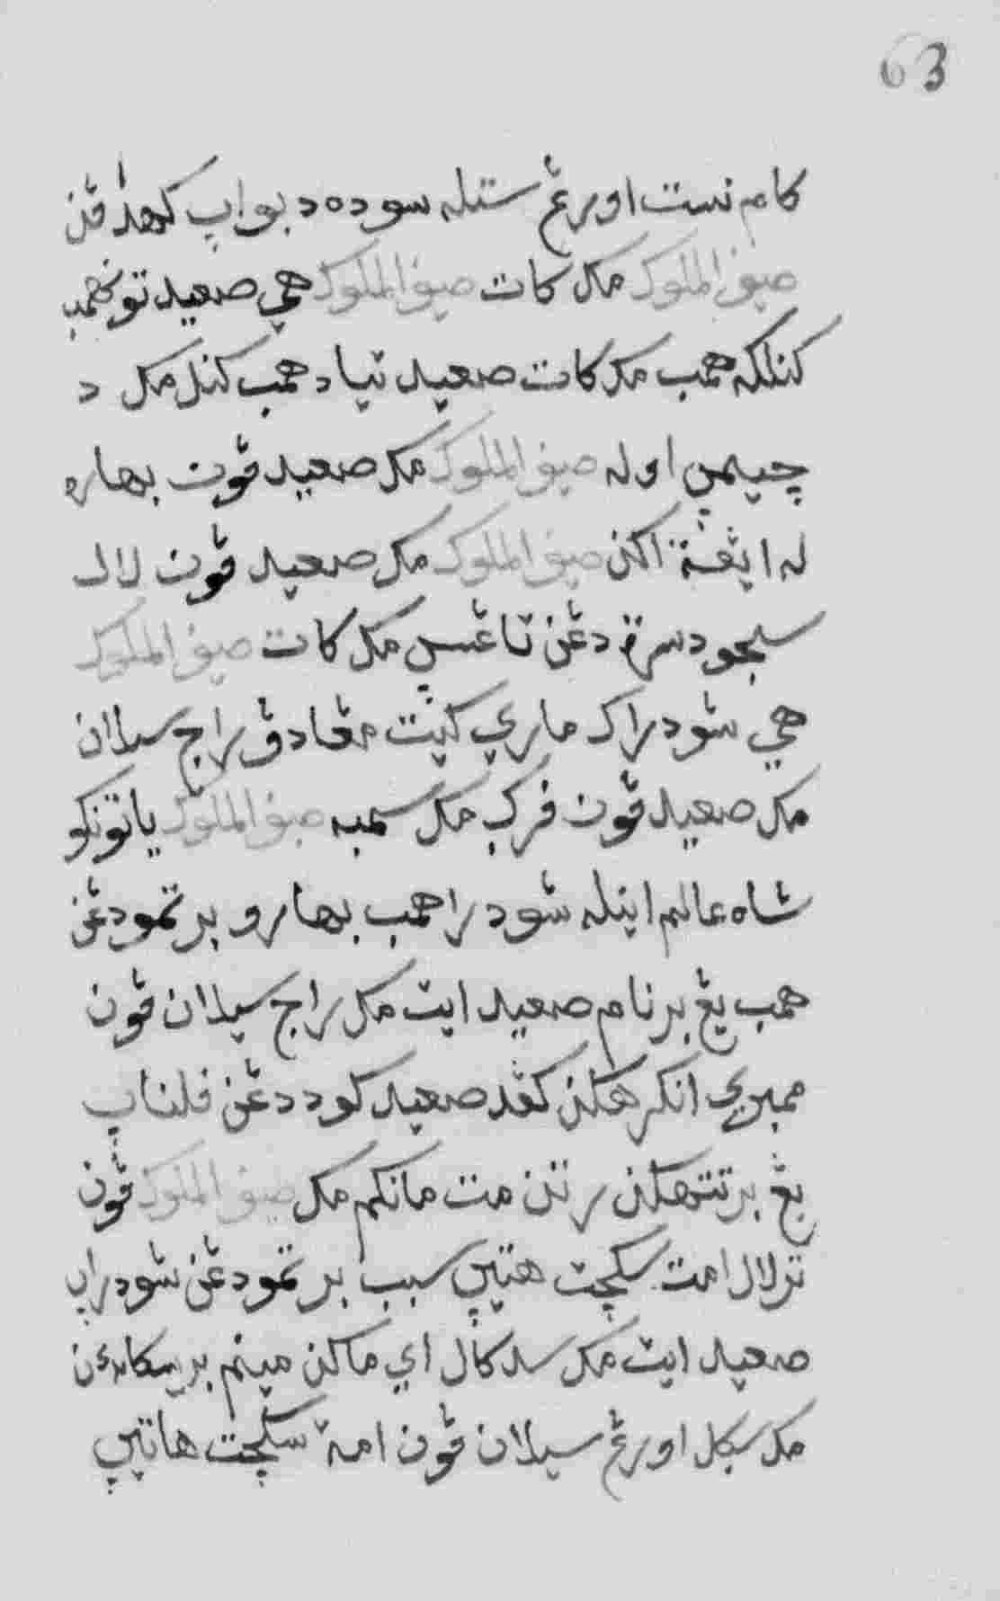 63
كام نست اورڠ ستله سوده دبواب كهد ڤن
صيف الملوك مك كات صيف الملوك هي صعيد توनहمب
كنلكه همب مك كات صعيد تياد همب كنل مك د
چيمڽ اوله صيف الملوك مك صعيد ڤون بهارو
له ايڠة اكن صيف الملوك مك صعيد ڤون لالا
سجود سرة دڠن تاڠسڽ مك كات صيف الملوك
هي سودراك ماري كيت مڠادڤ راج سيلان
مك صعيد ڤون فركي مك سمبه صيف الملوك يا تونكو
شاه عالم اينله سودرا همب بهارو برتمو دڠن
همب يڠ برنام صعيد ايت مك راج سيلان ڤون
ممبري انكرهكن كڤد صعيد كود دڠن فلناڽ
يڠ برتتهكن رتن مت مانكم مك صيف الملوك ڤون
ترلال امت سكچت هتيڽ سبب برتمو دڠن سودراڽ
صعيد ايت مك سدكال اي ماكن مينم برسكائن
مك سكل اورڠ سيلان ڤون امة سكچت هاتيڽ